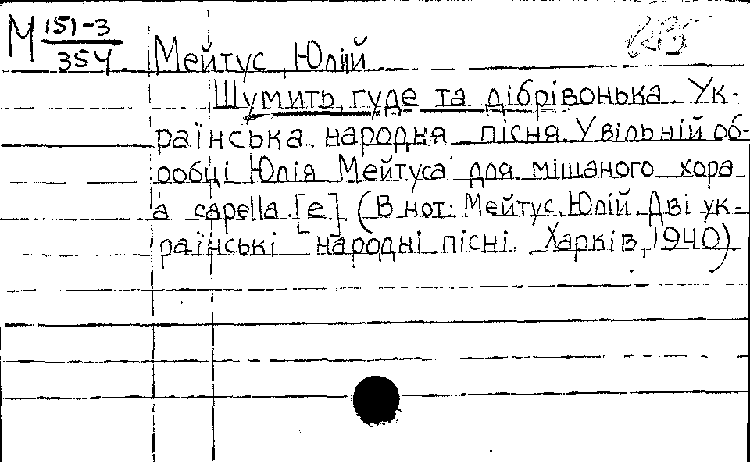 М 151-3
354
Мейтус, Юлій
Шумить, гуде та дібрівонька. Ук-
раїнська народня пісня. У вільній об-
робці Юлія Мейтуса для мішаного хора
a capella. [e]. (В нот: Мейтус, Юлій. Дві ук-
раїнські народні пісні. Харків, 1940)